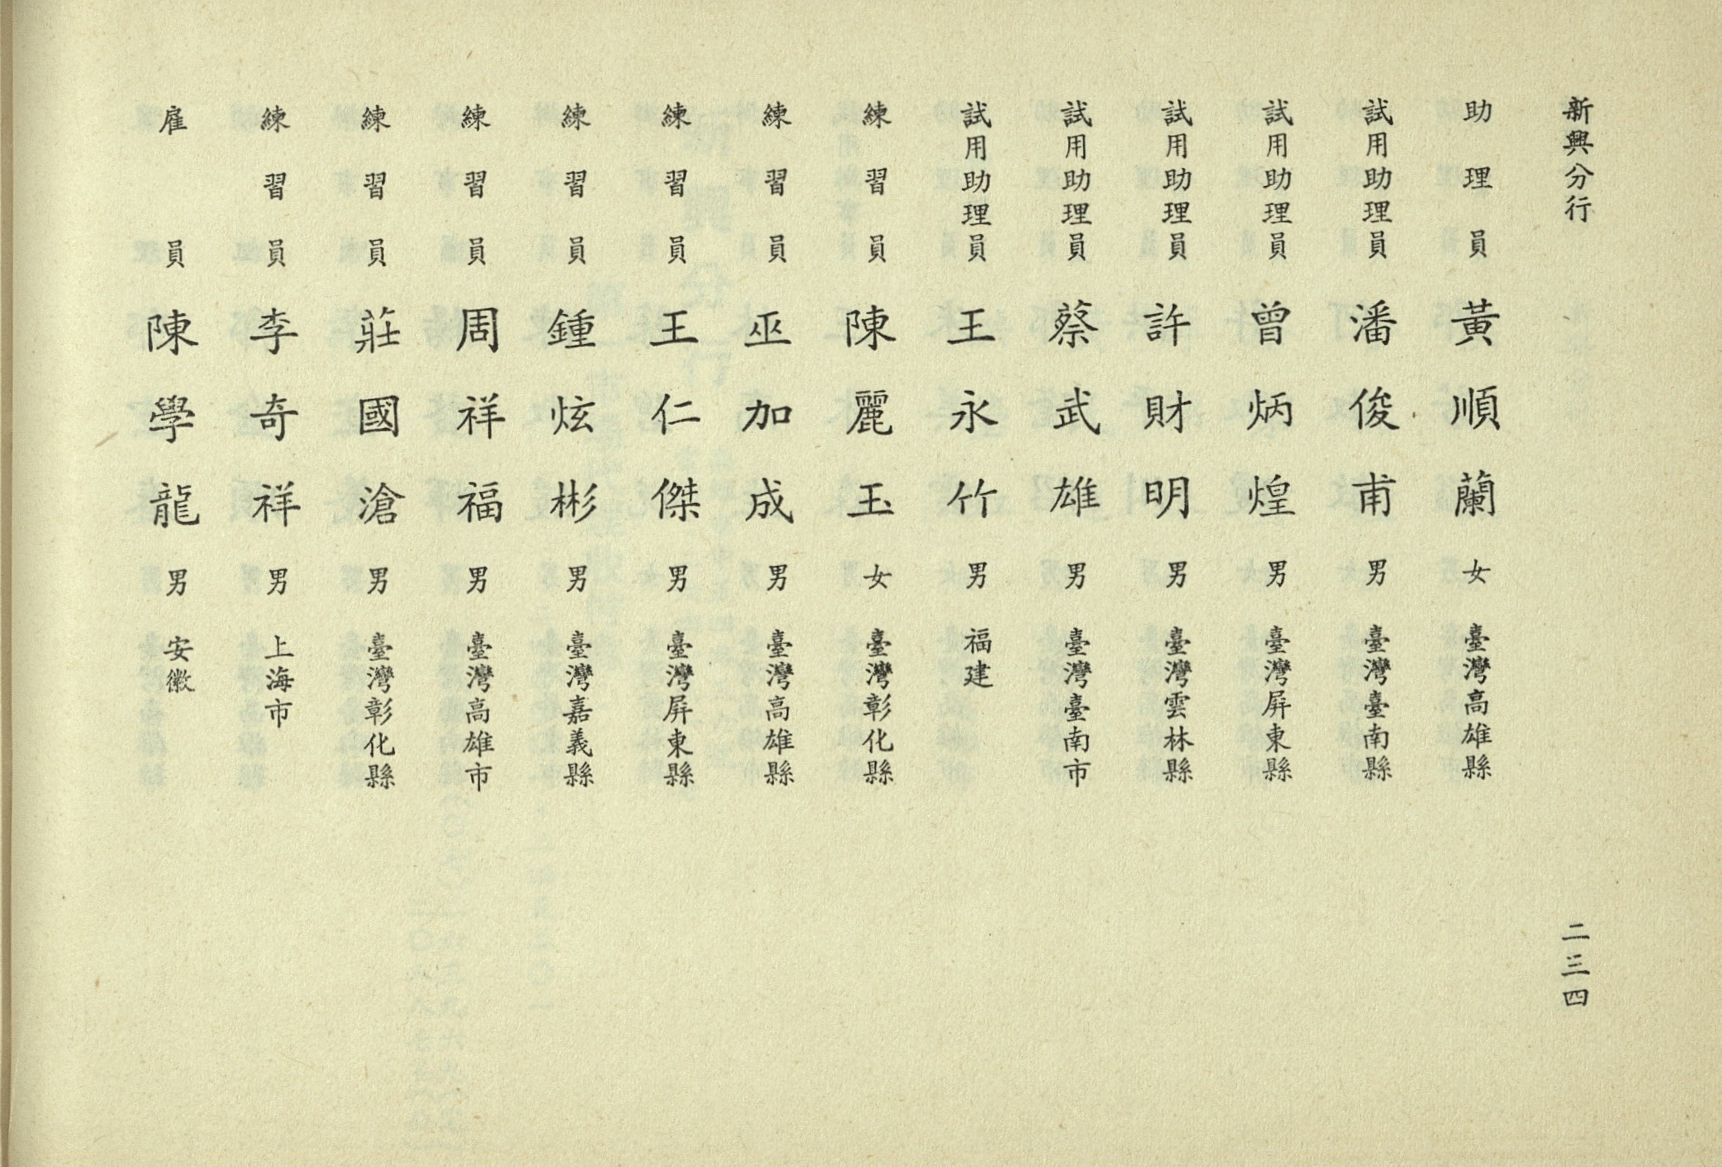 新興分行
二三四
助理員 黃順蘭 女 臺灣高雄縣
試用助理員 潘俊甫 男 臺灣臺南縣
試用助理員 曾炳煌 男 臺灣屏東縣
試用助理員 許財明 男 臺灣雲林縣
試用助理員 蔡武雄 男 臺灣臺南市
試用助理員 王永竹 男 福建
練習員 陳麗玉 女 臺灣彰化縣
練習員 巫加成 男 臺灣高雄縣
練習員 王仁傑 男 臺灣屏東縣
練習員 鍾炫彬 男 臺灣嘉義縣
練習員 周祥福 男 臺灣高雄市
練習員 莊國滄 男 臺灣彰化縣
練習員 李奇祥 男 上海市
雇員 陳學龍 男 安徽